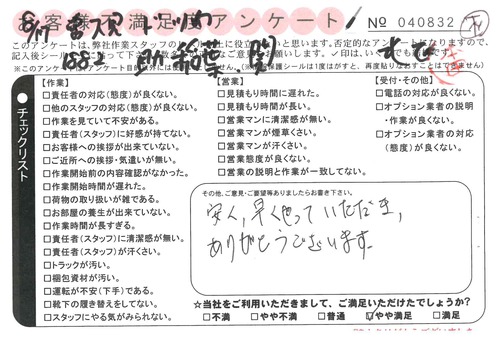 お客様不満足度アンケート
№ 040832
このアンケートは、弊社作業スタッフの
✓印は、いくつでも結構です。
チェックリスト
【作業】
□責任者の対応(態度)が良くない。
□他のスタッフの対応(態度)が良くない。
□作業を見ていて不安がある。
□責任者(スタッフ)に好感が持てない。
□お客様への挨拶が出来ていない。
□ご近所への挨拶・気遣いが無い。
□作業開始前の内容確認がなかった。
□作業開始時間が遅れた。
□荷物の取り扱いが雑である。
□お部屋の養生が出来ていない。
□作業時間が長すぎる。
□責任者(スタッフ)に清潔感が無い。
□責任者(スタッフ)が汗くさい。
□トラックが汚い。
□梱包資材が汚い。
□運転が不安(下手)である。
□靴下の履き替えをしてない。
□スタッフにやる気がみられない。
【営業】
□見積もり時間に遅れた。
□見積もり時間が長い。
□営業マンに清潔感が無い。
□営業マンが煙草くさい。
□営業マンが汗くさい。
□営業態度が良くない。
□営業の説明と作業が一致してない。
【受付・その他】
□電話の対応が良くない。
□オプション業者の説明・作業が良くない。
□オプション業者の対応(態度)が良くない。
その他、ご意見・ご要望等ありましたらお書き下さい。
安く、早くやっていただき、
ありがとうございます。
☆当社をご利用いただきまして、ご満足いただけたでしょうか?
□不満 □やや不満 □普通 ☑やや満足 □満足